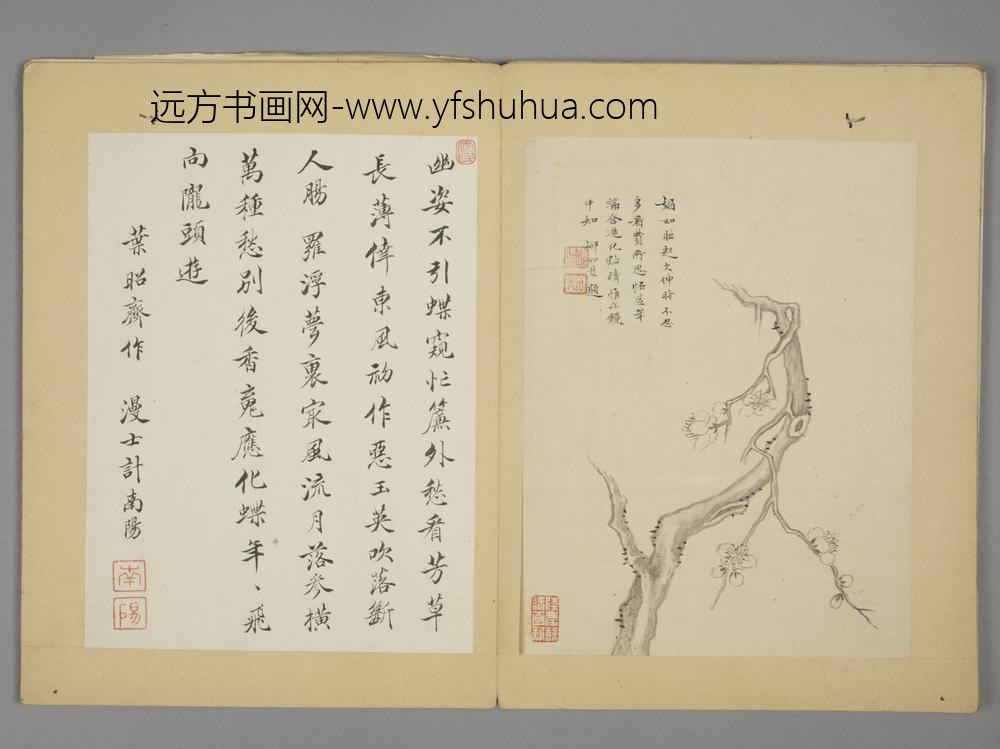 远方书画网-www.yfshuhua.com
媚如睡起欠伸時不忍
多着費所思怪底筆
端合造化點睛惟
中知 柳如是題
幽姿不引蝶窺忙簾外愁看芳草
長薄倖東風初作惡玉英吹落斷
人腸 羅浮夢裏寂風流月落參橫
萬種愁別後香魂應化蝶年、飛
向隴頭遊
葉昭齊作 漫士計南陽
南
陽